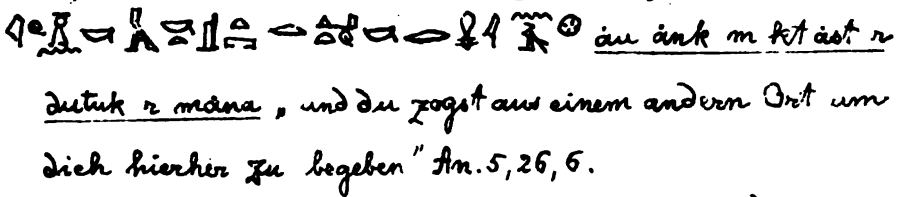 åu ånk m kt åst r
dutuk r måna „und du zogst aus einem andern Ort um
dich hierher zu begeben" An. 5, 26, 6.